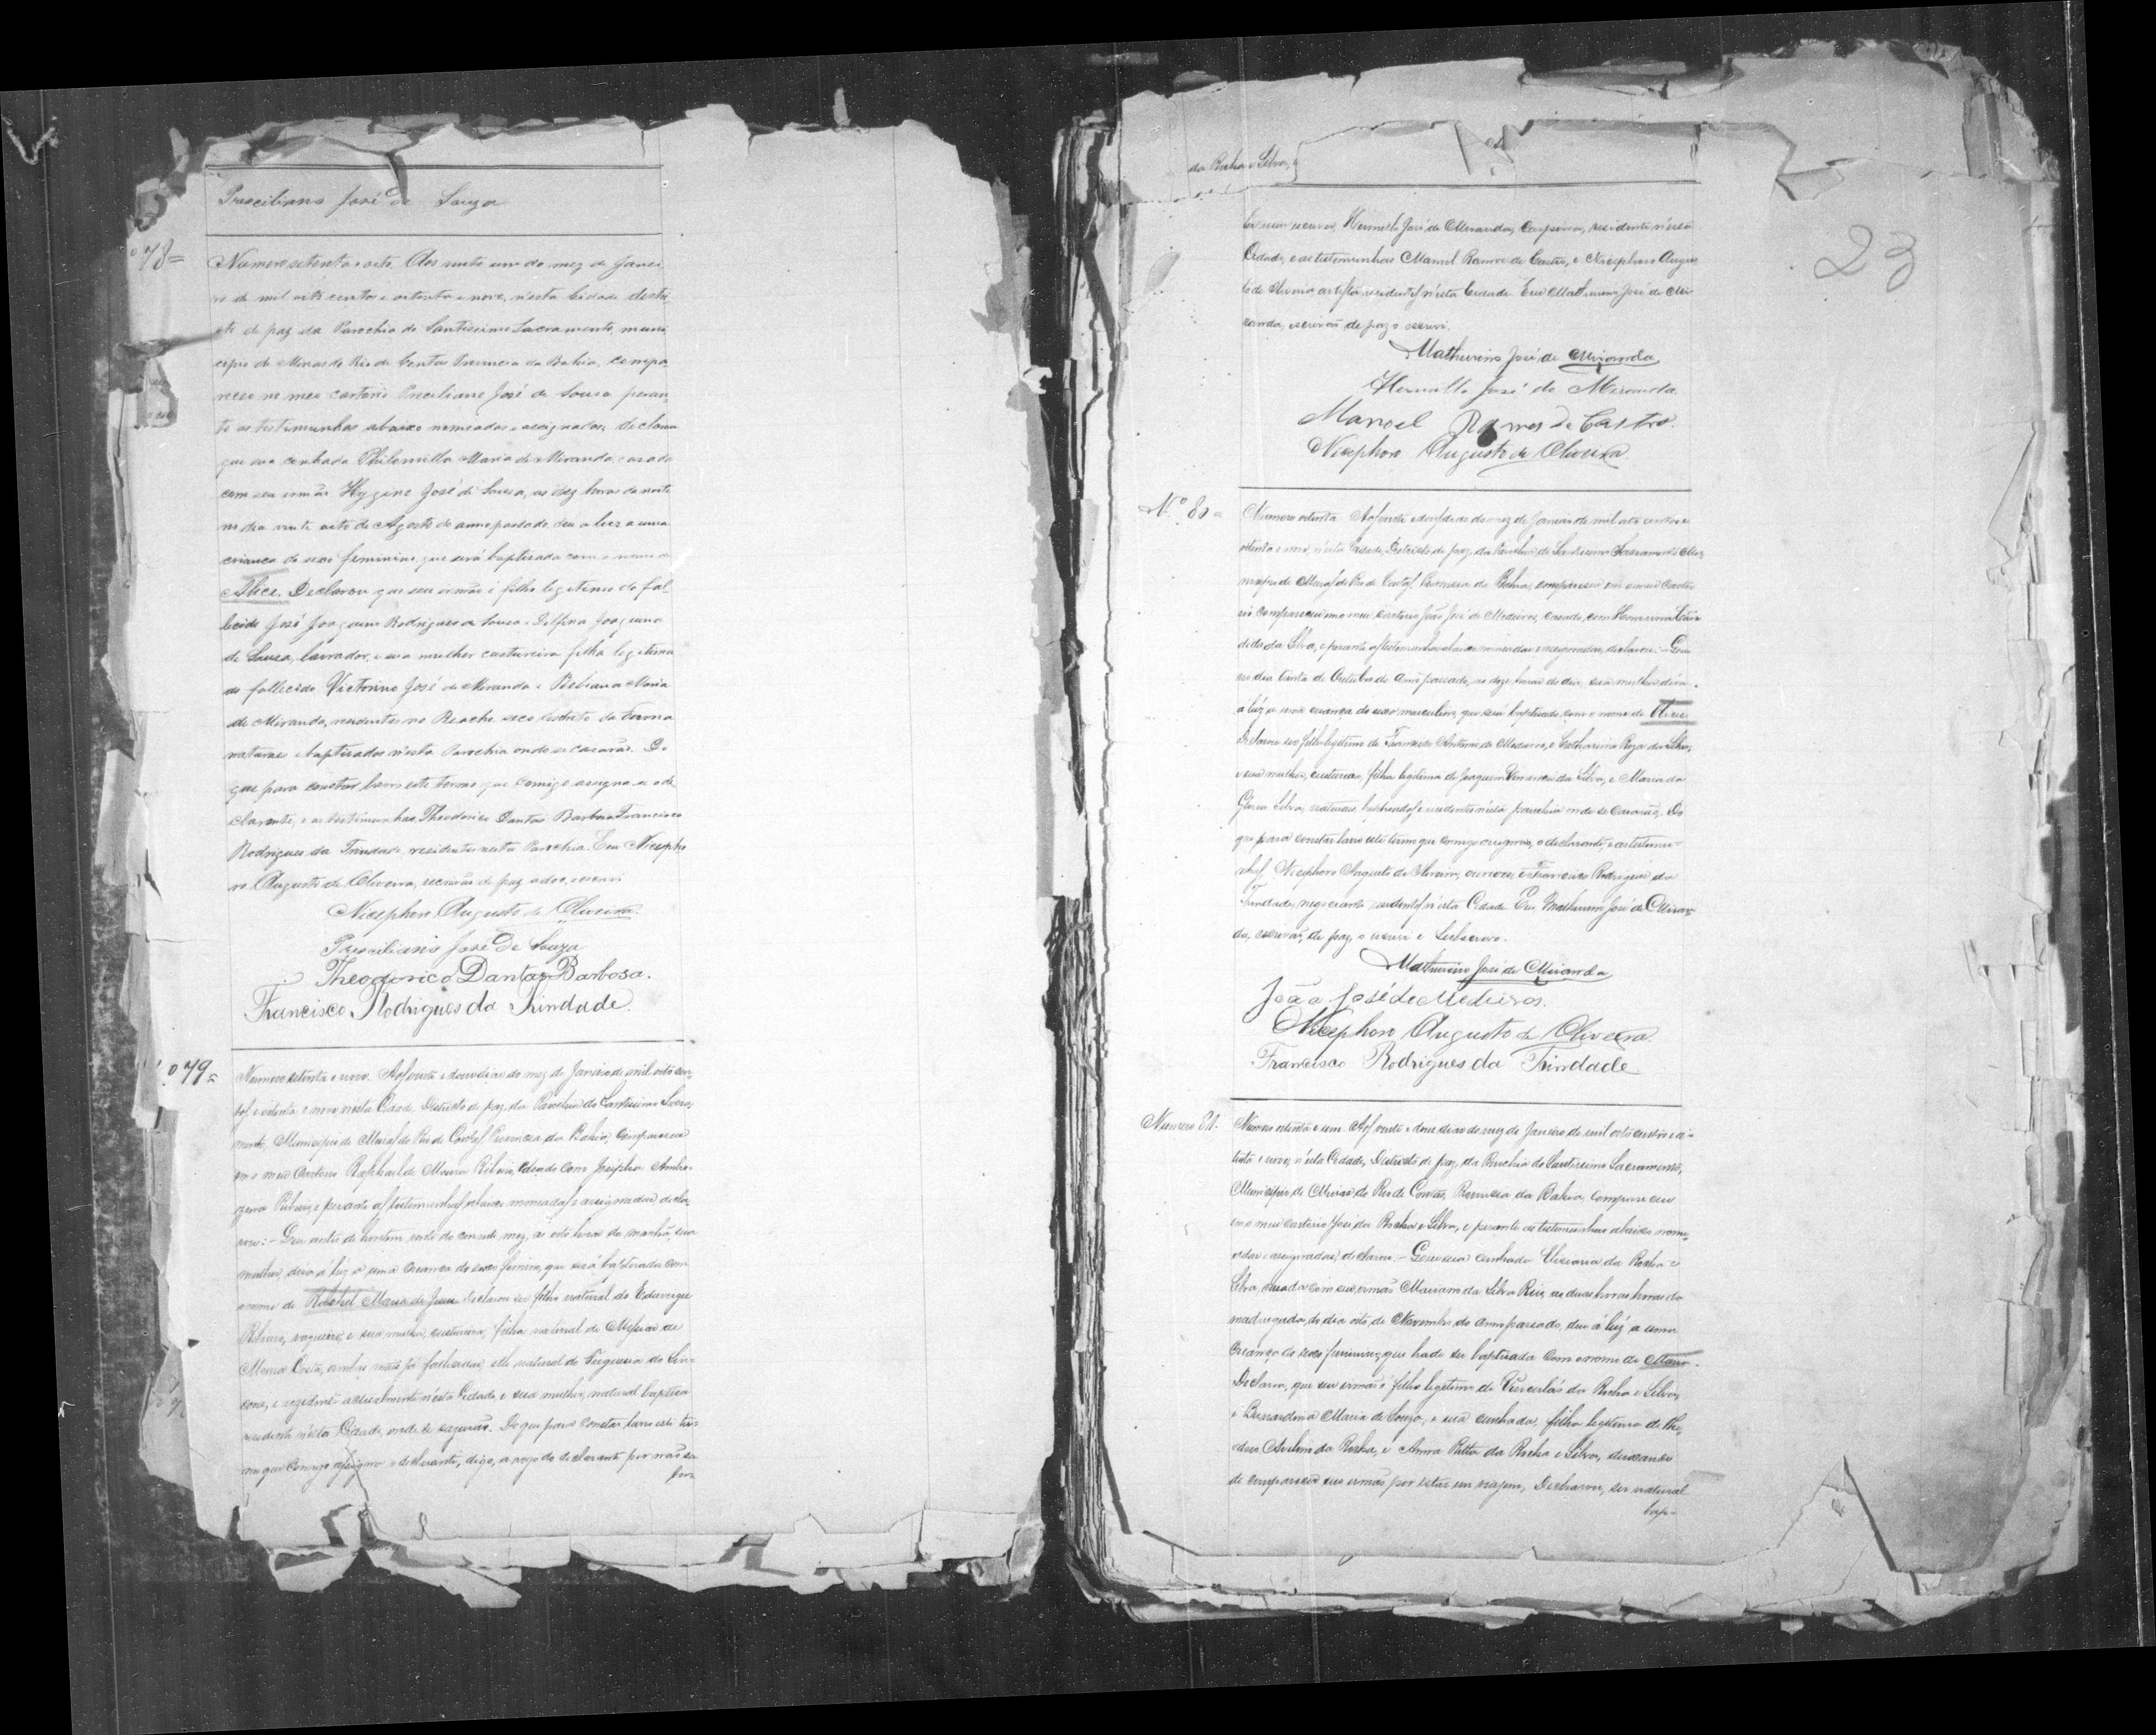 Presciliano José de Souza
º 78=
Numero setenta e oito. Aos vinte um do mez de Janei
ro de mil oito centos e oitenta e nove, n'esta Cidade distri
cto de paz da Parochia do Santissimo Sacramento, muni
cipio de Minas do Rio de Contas Provincia da Bahia, compa
receo no meu cartorio Presciliano José de Sousa peran
te as testimunhas abaixo nomeadas e assignadas, declarou
que sua cunhada Philomilla Maria de Miranda casada
com seu irmão Hygino José de Sousa, as dez horas da noite
no dia vinte oito de Agosto do anno passado, deu a luz a uma
criança do sexo feminino que será baptisada com o nome de
Alice. Declarou que seu irmão é filho legitimo do fal
lecido José Joaquim Rodrigues de Sousa e Delfina Joaquina
de Sousa, lavrador, e sua mulher custureira filha legitima
do fallecido Victorino José de Miranda e Bibiana Maria
de Miranda, residentes no Riacho seco districto da Furna
naturaes e baptisados n'esta Parochia onde se casarão. Do
que para constar lavro este termo que comigo assigna o de
clarante, e as testimunhas, Theodorico Dantas Barbosa Francisco
Rodrigues da Trindade residentes nesta Parochia. Eu Nicepho
ro Augusto de Oliveira, escrivão de paz adoc, escrevi
Nicephoro Augusto de Oliveira.
Presciliano José de Souza
Theodorico Dantas Barbosa.
Francisco Rodrigues da Trindade.
º 79=
Numero setenta e nove. Aos vinte e dous dias do mez de Janeiro de mil oito cen-
tos e oitenta e nove nesta Cidade, Districto de paz, da Parochia do Santissimo Sacra-
mento, Municipio de Minas do Rio de Contas, Provincia da Bahia, compareceu
em o meu Cartorio Raphael de Moura Ribeiro, casado com Josepha Ambro-
zina Ribeiro, e perante as testemunhas abaixo nomeadas e assignadas decla-
rou: - Que antes de hontem vinte do corrente mez, as oito horas da manhã, sua
mulher, deu á luz a uma creança do sexo feminino, que será baptisada com
o nome de Rachel Maria de Jesus. Declarou ser filho natural de
Ribeiro, vaqueiro, e sua mulher, custureira, filha natural de Messias de
Moura Costa, ambas mais já fallecidas, elle natural de
e rezidente actualmente n'esta Cidade, e sua mulher, natural baptisa
residente n'esta Cidade, onde se casarão. Do que para constar lavro este ter-
mo que comigo assigna o declarante, digo, a rogo do declarante por não sa
ber
da Rocha e Silva,
23
ber nem escrever, Hermillo José de Miranda, residente n'esta
Cidade, e as testemunhas Manoel Ramos de Castro, e Nicephoro Augus
to de Oliveira artista residentes n'esta Cidade. Eu Mathurino José de Mi
randa, escrivão de paz o escrevi.
Mathurino José de Miranda
Hermillo José de Miranda.
Manoel Ramos de Castro.
Nicephoro Augusto de Oliveira.
Nº 80=
Numero oitenta Aos vinte e dous dias do mez de Janeiro de mil oito centos e
oitenta e nove, n'esta Cidade, Districto de paz, da Parochia do Santissimo Sacramento Mu
nicipio de Minas do Rio de Contas, Provincia da Bahia, compareceu em o meu Carto
rio compareceu em o meu Cartorio João José de Medeiros, casado, com
da Silva, e perante as testemunhas abaixo nomeadas e assignadas, declarou: - Que
no dia trinta de Outubro do anno passado, as doze horas do dia, sua mulher dera
á luz a uma criança do sexo masculino, que será baptisado com o nome de
Declarou ser filho legitimo de Francisco Antonio de Medeiros, e Catharina Roza da Silva,
e sua mulher, custureira, filha legitima de Joaquim Venancio da Silva, e Maria da
Gloria Silva, naturaes, baptisados e residentes n'esta parochia onde se casarão. Do
que para constar lavro este termo que comigo assignão, o declarante, e as testemu-
nhas, Nicephoro Augusto de Oliveira, e Francisco Rodrigues da
Trindade, negociante residentes n'esta Cidade. Eu Mathurino José de Miran
da, escrivão de paz, o escrevi e Subscrevo.
Mathurino José de Miranda
João José de Medeiros.
Nicephoro Augusto de Oliveira.
Francisco Rodrigues da Trindade
Numero 81=
Numero oitenta e um. Aos vinte e dous dias do mez de Janeiro de mil oito centos e oi-
tenta e nove, n'esta Cidade, Districto de paz, da Parochia do Santissimo Sacramento,
Municipio de Minas do Rio de Contas, Provincia da Bahia, compareceu
em o meu cartorio José da Rocha e Silva, e perante as testemunhas abaixo nome-
adas e assignadas, declarou - Que sua cunhada da Rocha e
Silva, casada com seu irmão Mariano da Silva Reis, as duas horas horas da
madrugada, do dia oito de Novembro do anno passado, deu á luz a uma
creança do sexo feminino, que hade ser baptisada com o nome de Maria.
Declarou, que seu irmão é filho legitimo de Venceslás da Rocha e Silva,
e Bernardina Maria de Souza, e sua cunhada, filha legitima de The-
da Rocha, e Anna Ritta da Rocha e Silva, deixando
de comparecer seu irmão por estar em viagem, Declarou, ser natural
bap-